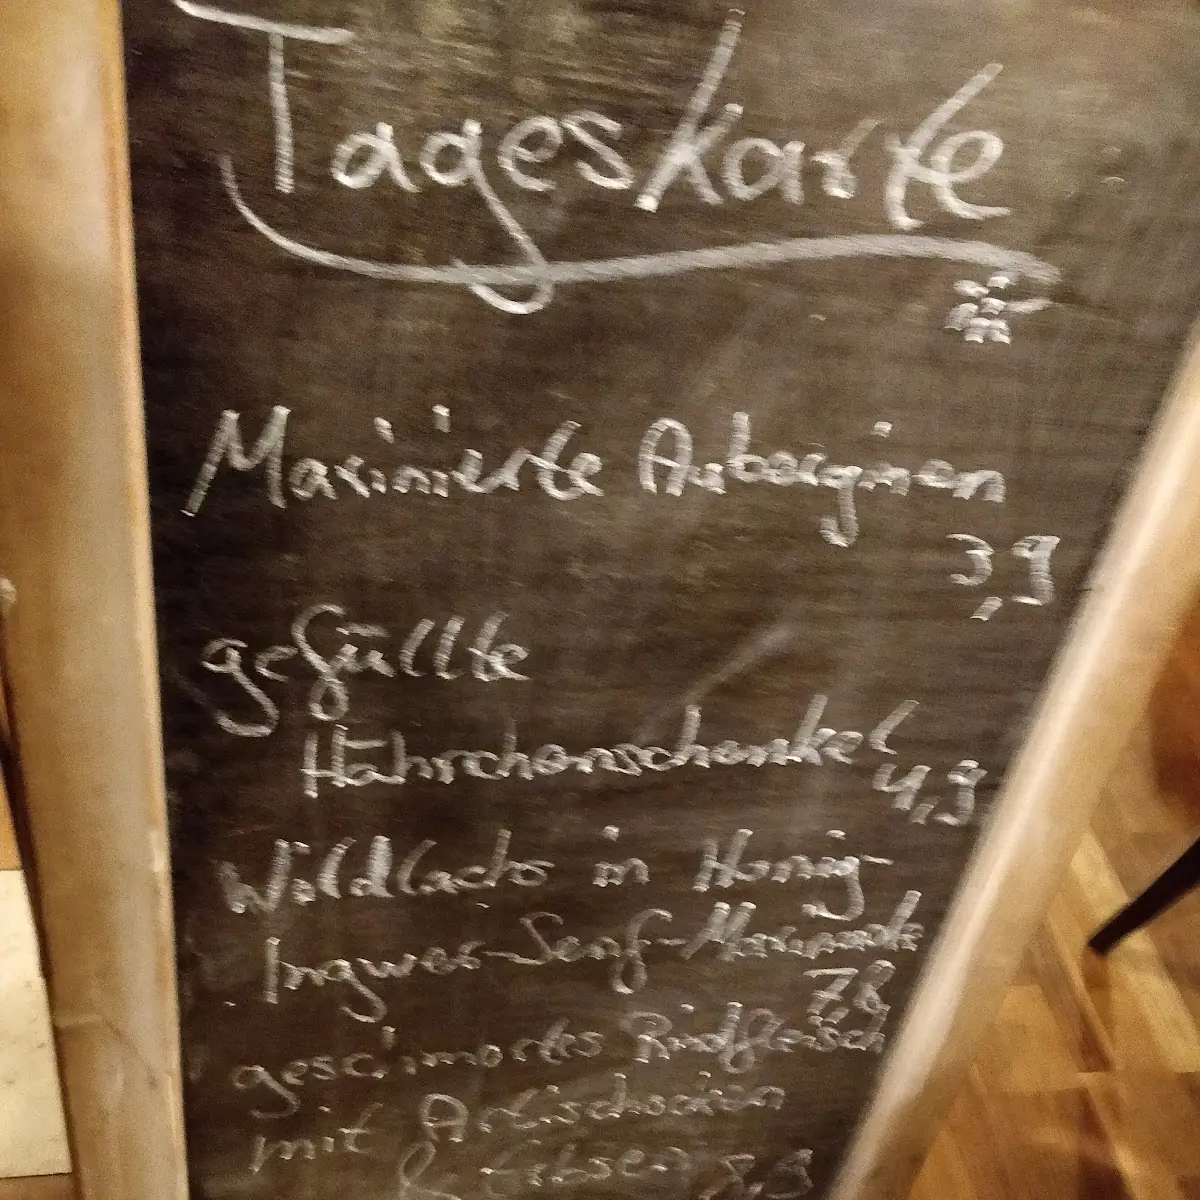 Tageskarte
Marinierte Auberginen
3,9
gefüllte
Hähnchenschenkel
4,9
Wildlachs in Honig-
Ingwer-Senf-Marinade
7,8
geschmortes Rindfleisch
mit Artischocken
& Erbsen 8,9